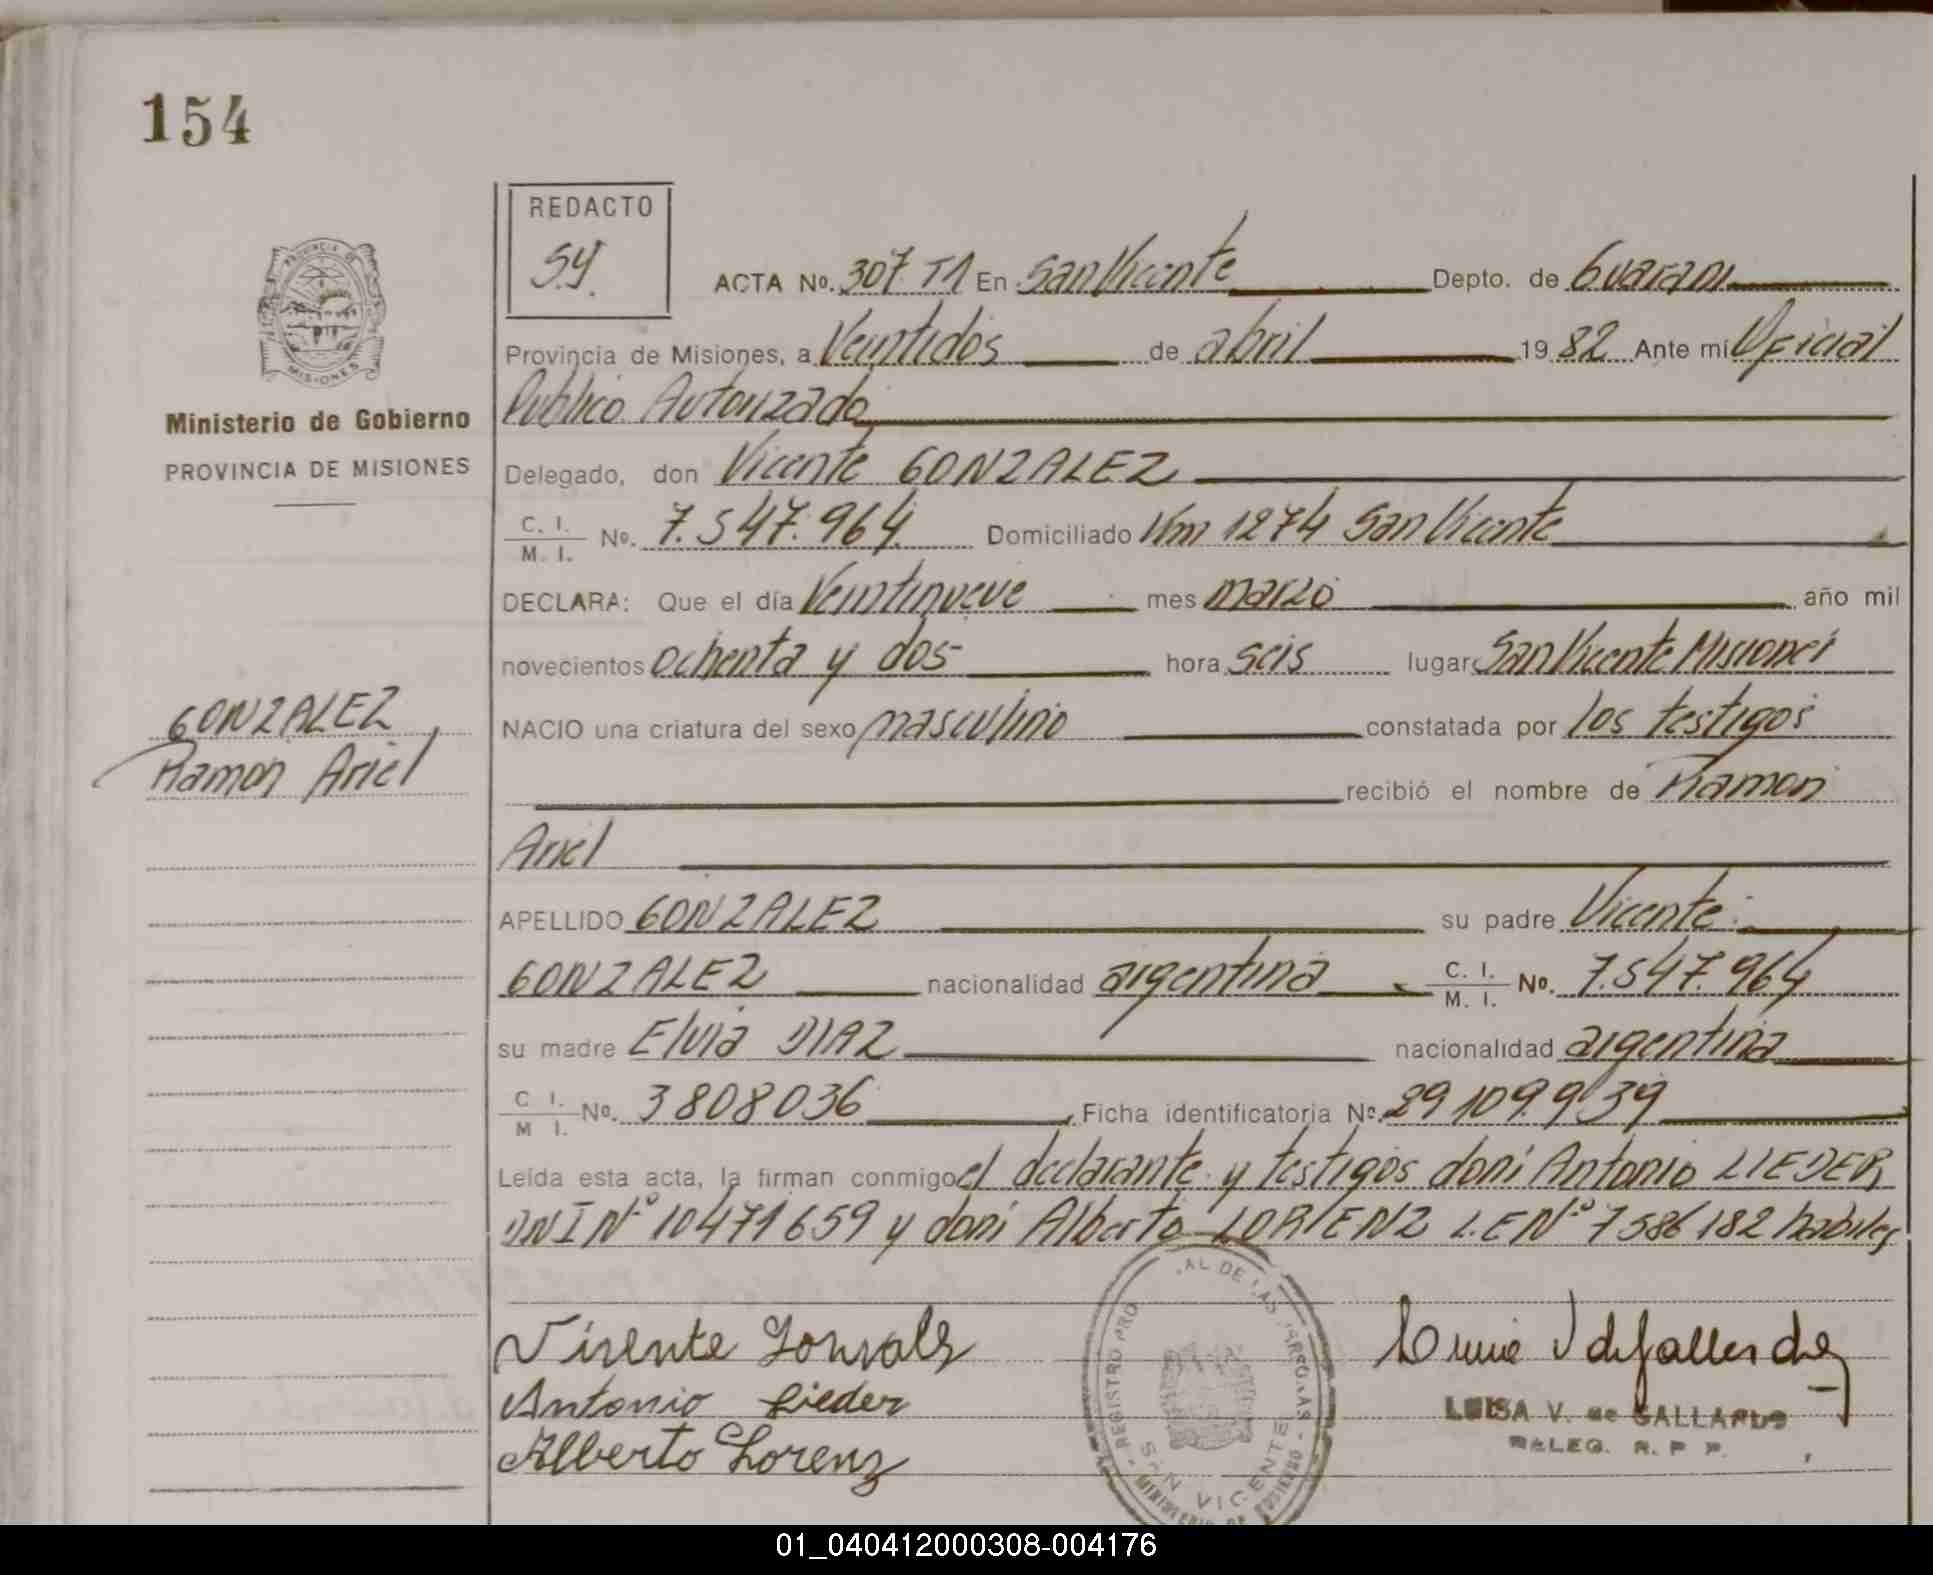 154
REDACTO
S.Y.
ACTA No. 307 T1 En San Vicente Depto. de Guarani
Provincia de Misiones, a Veintidos de abril 1982 Ante mí Oficial
Publico Autorizado
Ministerio de Gobierno
PROVINCIA DE MISIONES
Delegado, don Vicente GONZALEZ
C. I. / M. I. No. 7.547.964 Domiciliado Km 1274 San Vicente
DECLARA: Que el día Veintinueve mes marzo año mil
novecientos ochenta y dos hora seis lugar San Vicente Misiones
GONZALEZ
Ramon Ariel
NACIO una criatura del sexo masculino constatada por los testigos
recibió el nombre de Ramon
Ariel
APELLIDO GONZALEZ su padre Vicente
GONZALEZ nacionalidad argentina C. I. / M. I. No. 7.547.964
su madre Elvia DIAZ nacionalidad argentina
C I. / M I. No. 3808036 Ficha identificatoria No. 29.109.939
Leída esta acta, la firman conmigo el declarante y testigos don Antonio LIEDER
DNI Nº 10471659 y don Alberto LORENZ L.E Nº 7586182 habiles
Antonio Lieder
Alberto Lorenz
LUISA V. de GALLARDO
DELEG. R. P. P.
SAN VICENTE
01_040412000308-004176